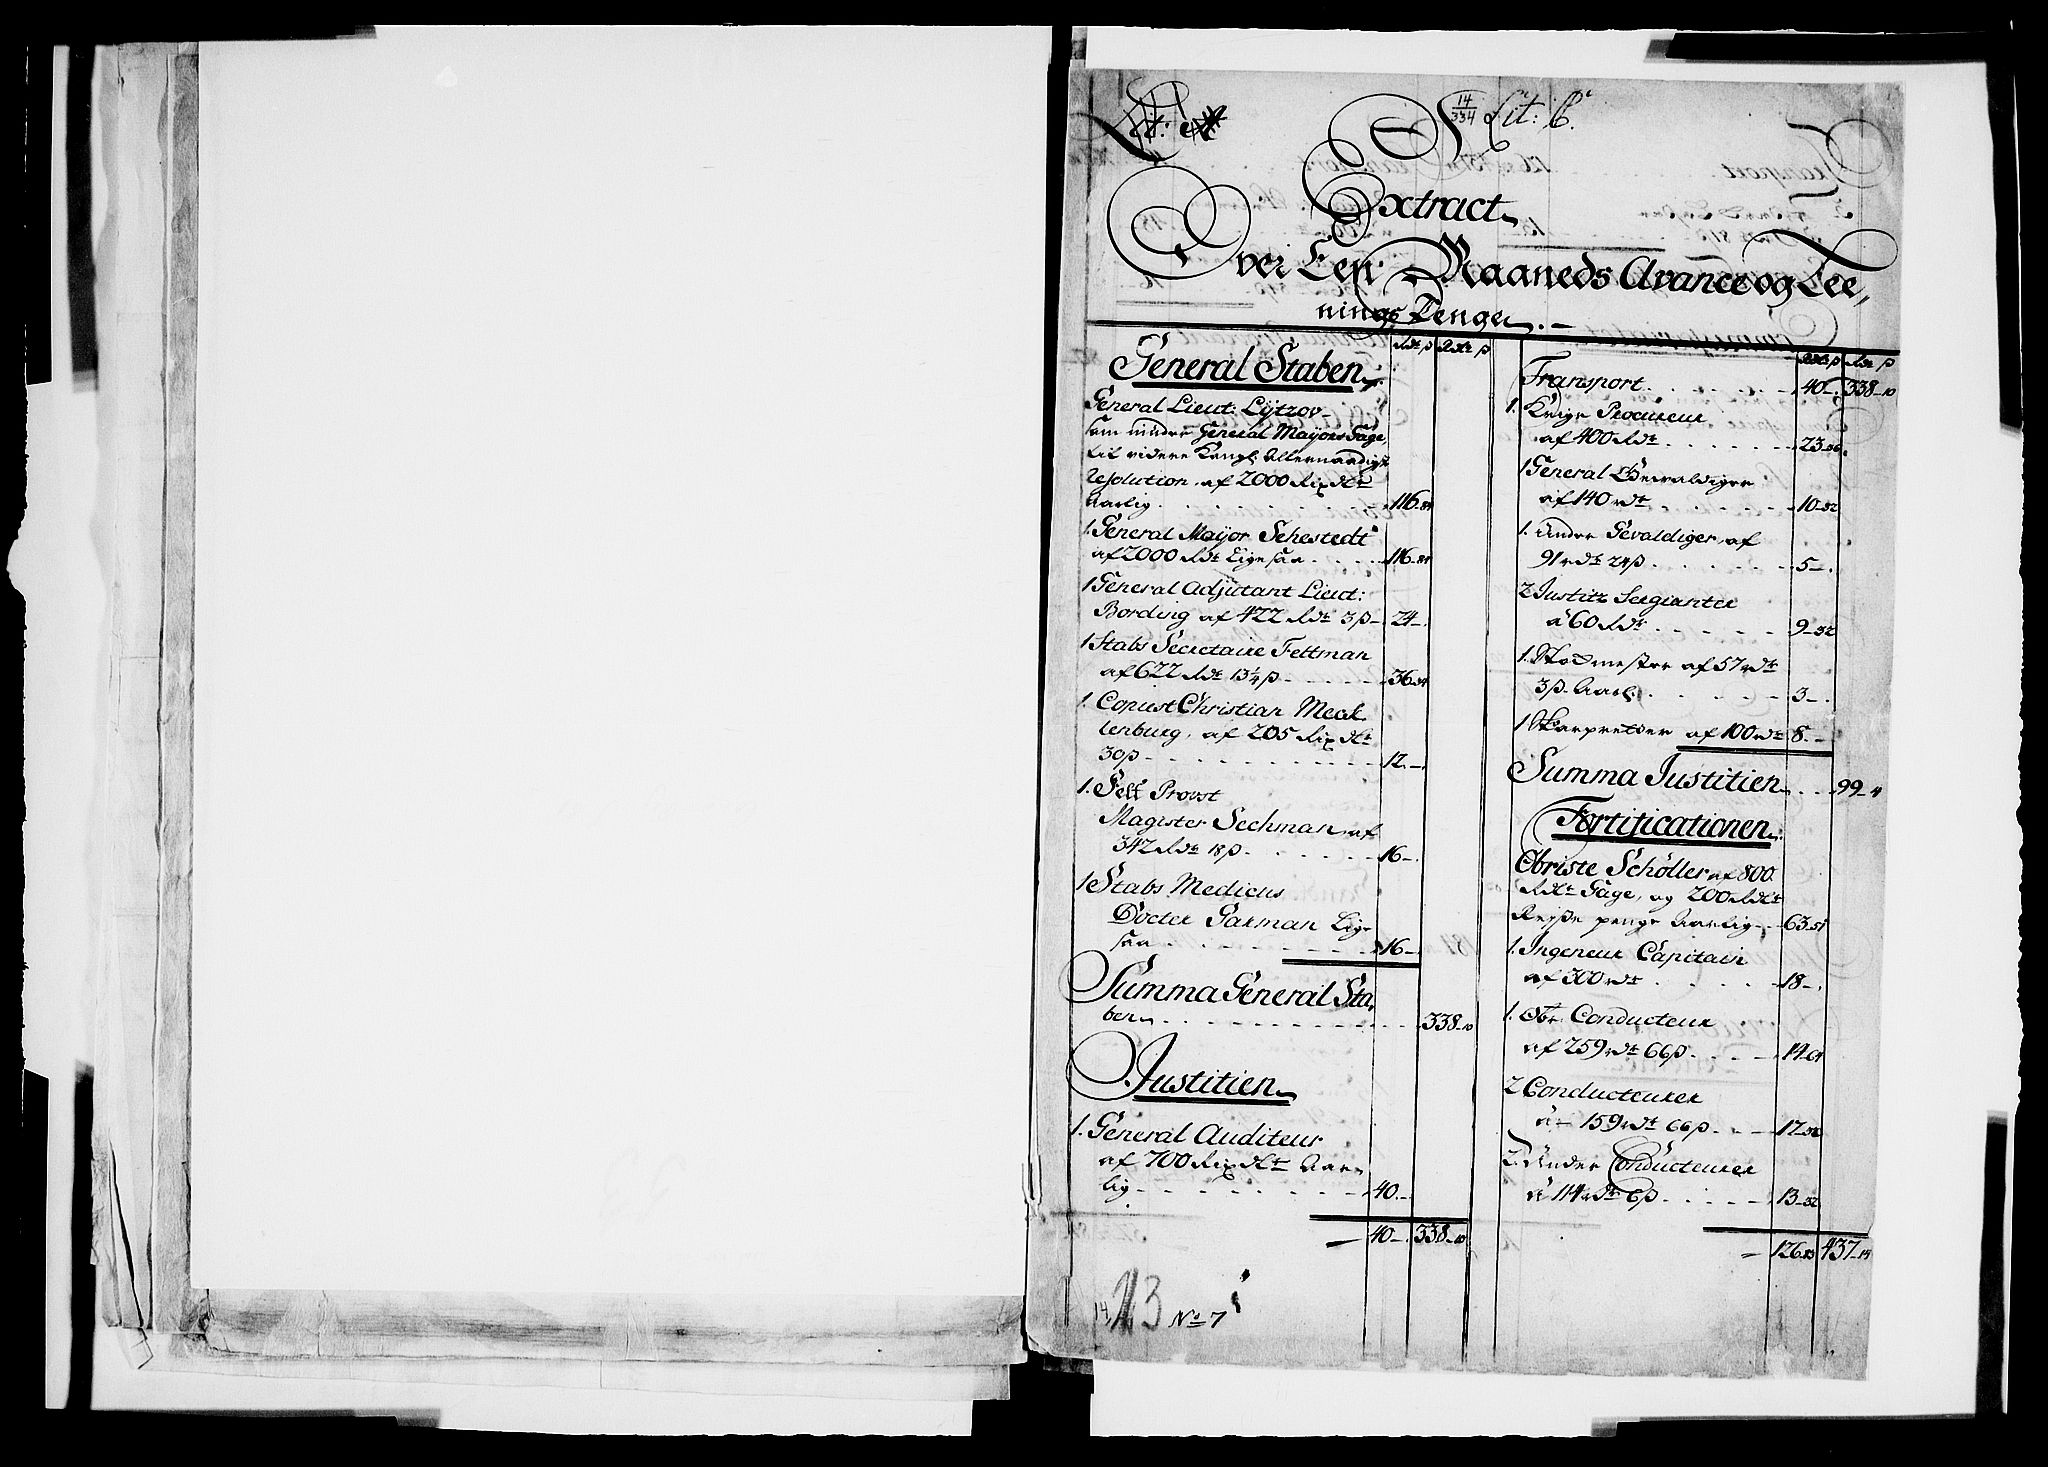 14/334 Lit: B.
Lit:
Extract
Over Een Maaneds Avance og Lee,
nings Penge.
Rdr ß Rdr ß
General Staben
General Lieut: Lÿtzov
som nÿder General Mayors Gage,
til videre Kongl: Allernaadigst
Resolution, af 2000 Rixdlr
aarlig 116-84
1. General Mayor Sehestedt
af 2000 Rdr Ligesaa 116-84
1 General Adjutant Lieut:
Bording af 422 Rdr 3ß 24-
1 Stabs Secretaire Fettman
af 622 Rdr 13¼ß 36-34
1. Copiist Christian Meck
lenburg, af 205 Rixdlr
30ß 12.-
1. Felt Provst
Magister Sechman, af
342 Rdr 18ß 16-
1 Stabs Medicus
Docter Garman Lige
saa 16-
Summa General Sta,
ben 338-10
Justitien
1. General Auditeur
af 700 Rixdlr Aar,
lig 40.-
40- 338-10
14, 23 No 7
Rdr ß Rdr ß
Transport 40- 338-10
1. Krigs Procureur
af 400 Rdr 23-36
1 General Gevaldiger
af 140 rdr 10-32
1. Under Gevaldiger, af
91 rdr 24ß 5-
2 Justitz Sergianter
á 60 Rdr 9-32
1. Stokmester af 57 rdr
3ß Aarl. 3-
1 Skarpretter af 100 rdr 8.-
Summa Justitien 99-4
Fortificationen
Obriste Schøller af 800
Rdlr Gage, og 200 Rdlr
Reyse penge Aarlig 63-51
1. Ingeneur Capitain
af 300 rdr 18-
1. Obr Conducteur
af 259 rdr 66ß 14-64
2 Conducteurer
á 159 rdr 66ß 17-36
2. Under Conducteurer
á 114 rdr 6ß 13-32
126-83 437-14